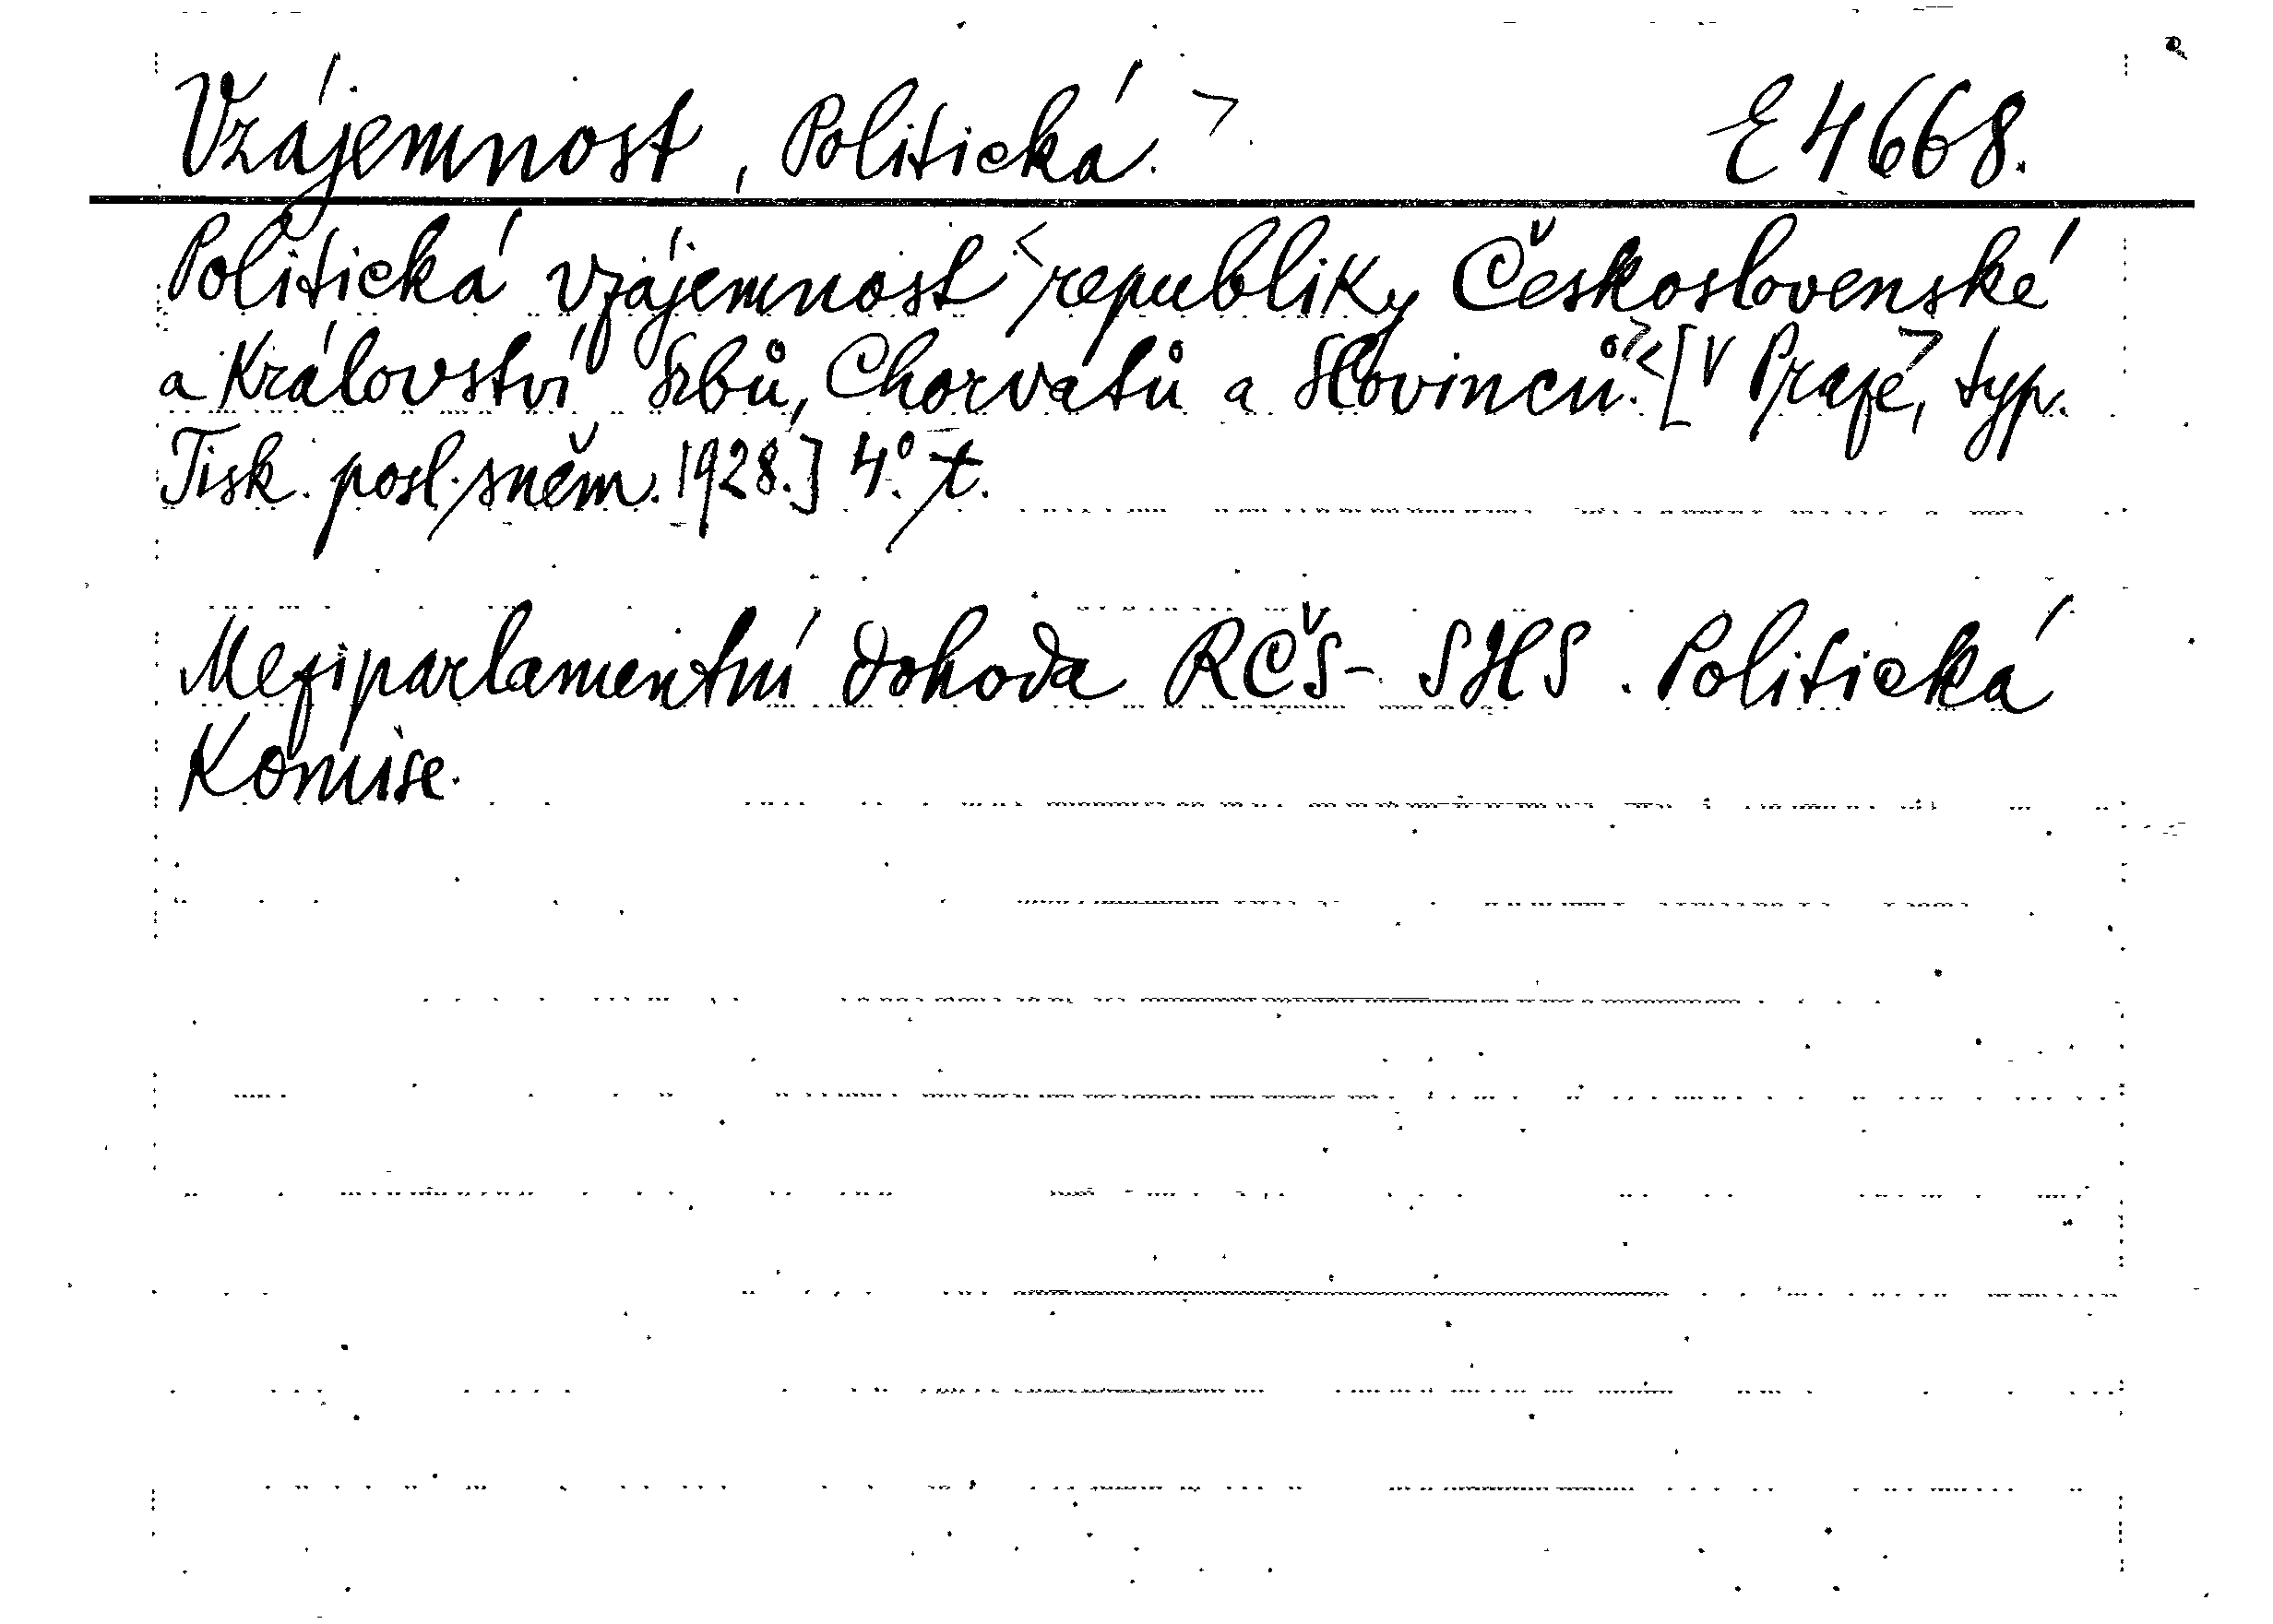 Vzájemnost, Politická. >. E 4668.
Politická vzájemnost < republiky Československé
a Království Srbů, Chorvatů a Slovinců.> < [V Praze, > typ.
Tisk. posl. sněm. 1928.] 4.° t.
Meziparlamentní dohoda RČS - SHS. Politická
Komise.